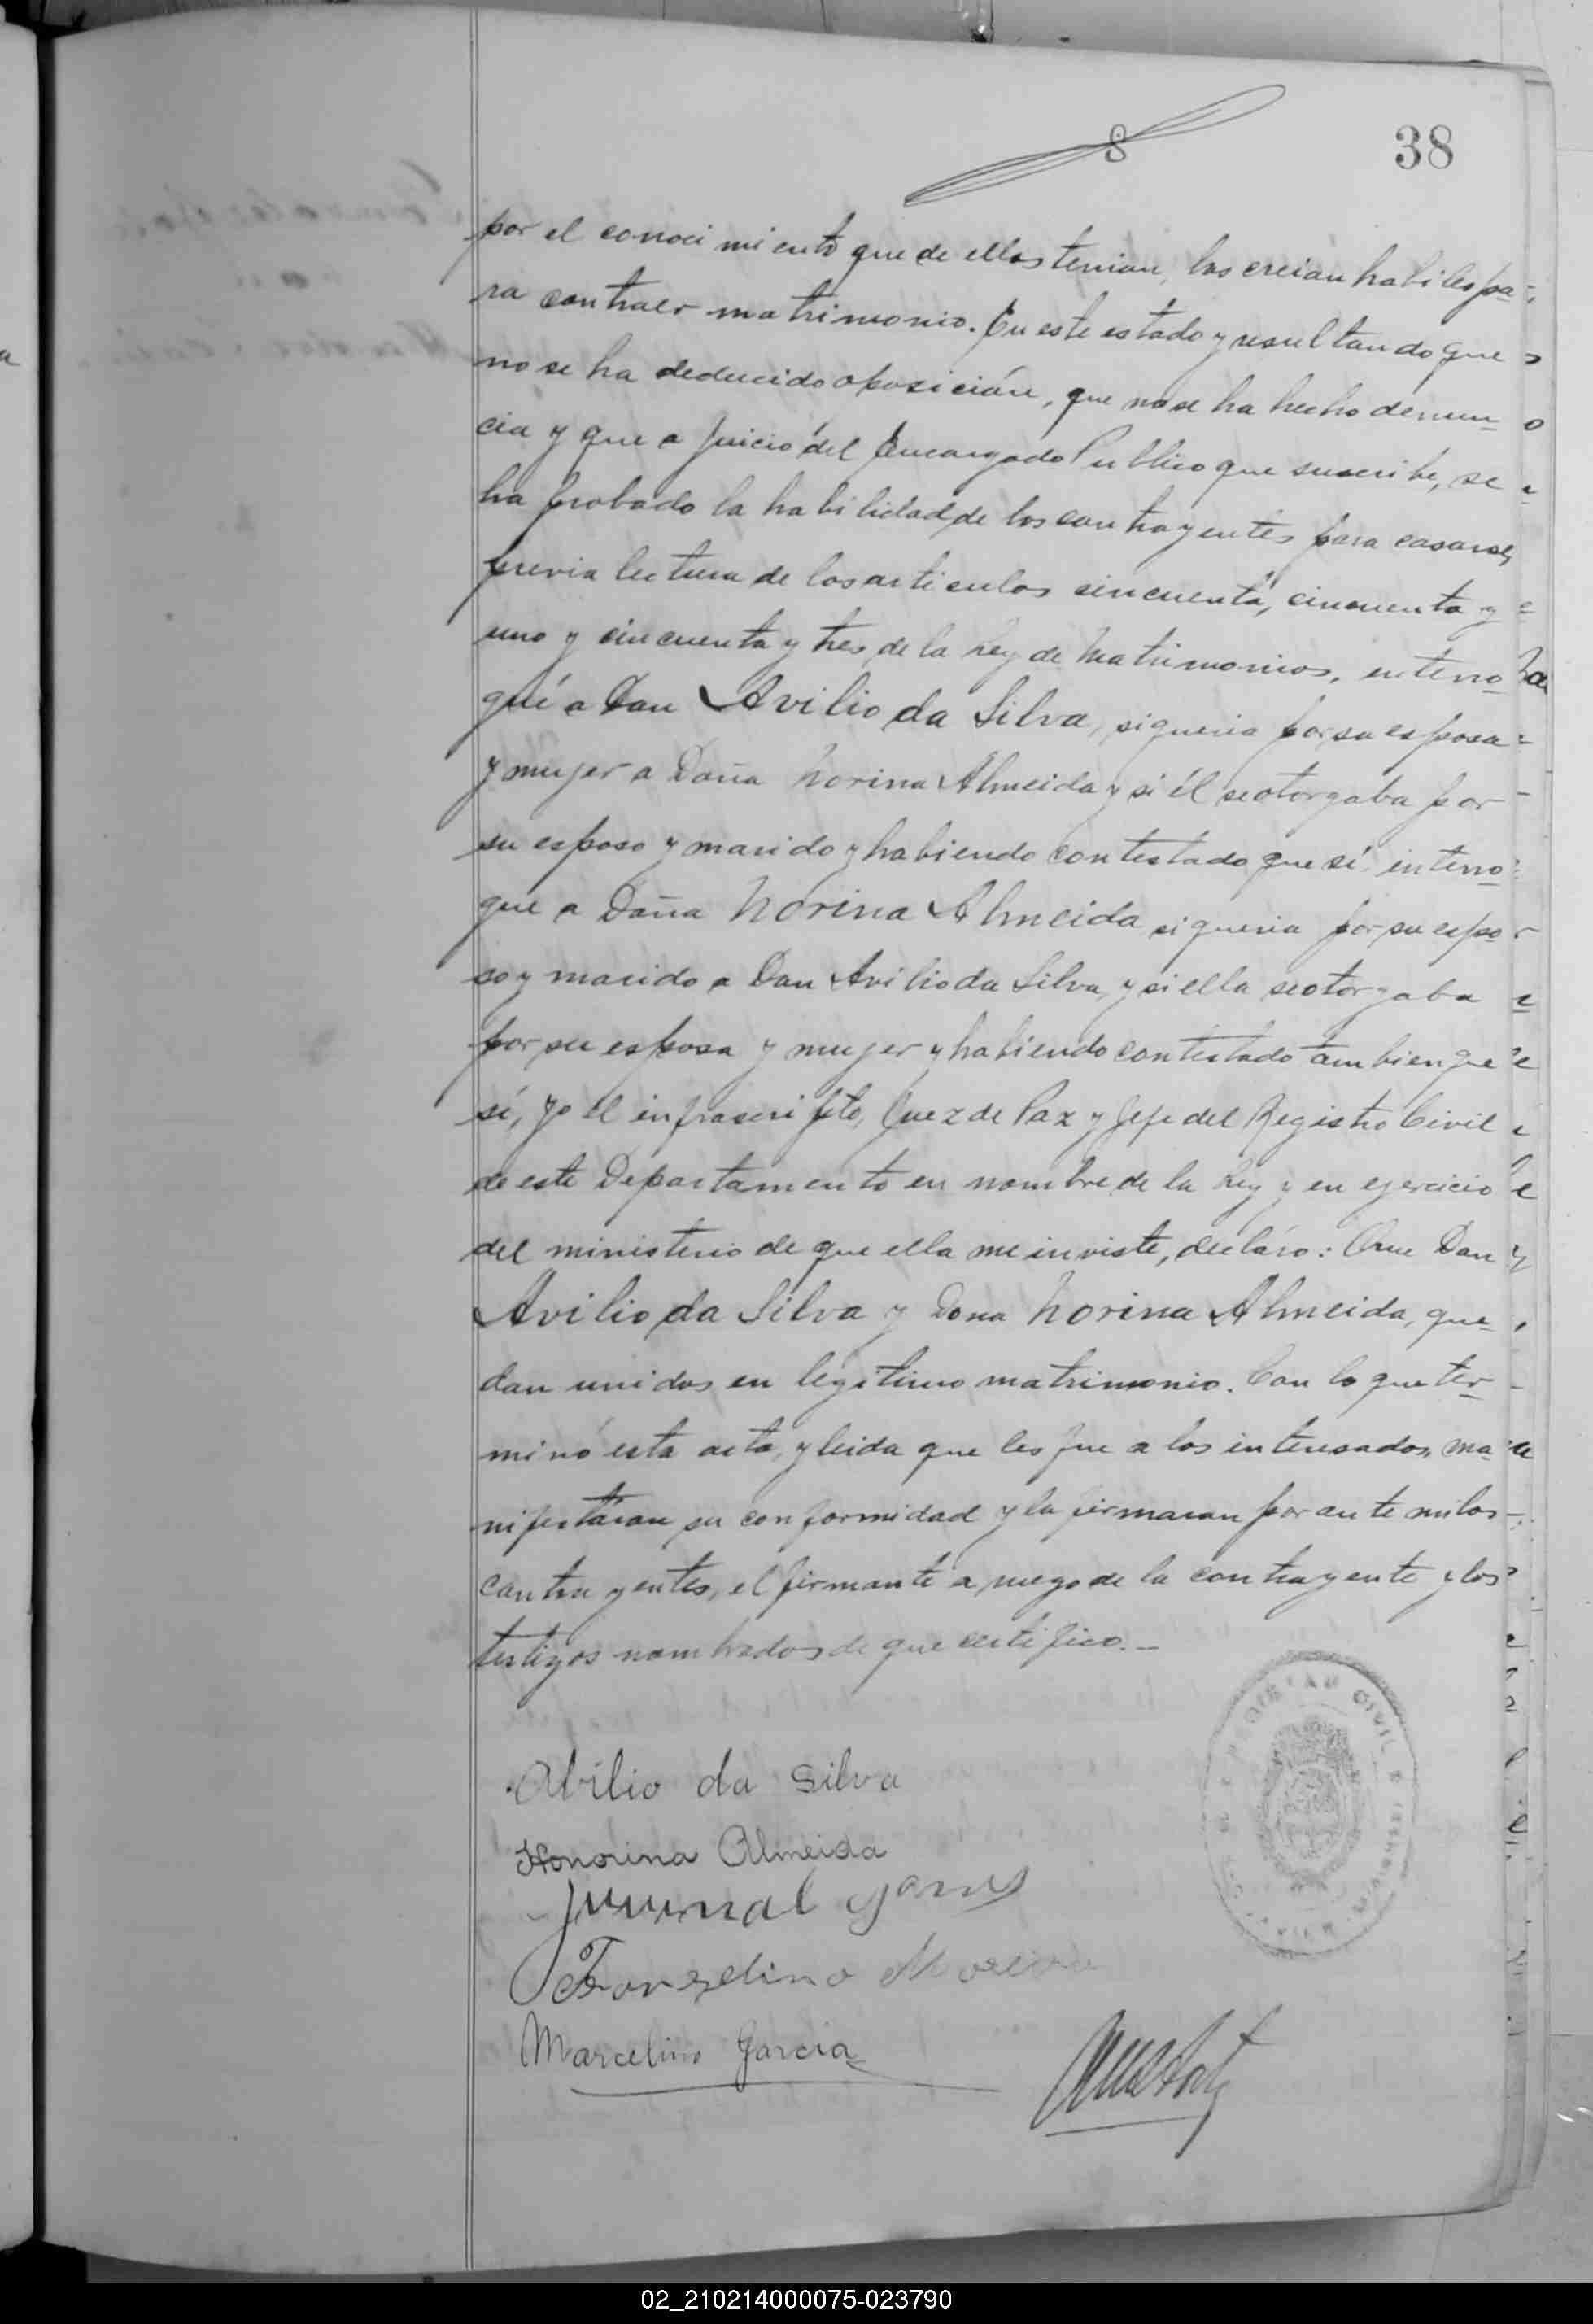 8
38
por el conocimiento que de ellos tenian, los creian habiles pa-
ra contraer matrimonio. En este estado y resultando que
no se ha deducido oposición, que no se ha hecho denun-
cia y que a juicio del Encargado Publico que suscribe, se
ha probado la habilidad de los contrayentes para casarse,
previa lectura de los articulos cincuenta, cincuenta y
uno y cincuenta y tres de la Ley de Matrimonios, interro-
gué a Don Avilio da Silva, si queria por su esposa
y mujer a Doña Norina Almeida y si él se otorgaba por
su esposo y marido y habiendo contestado que sí, interro-
gue a Doña Norina Almeida si queria por su espo-
so y marido a Don Avilio da Silva, y si ella se otorgaba
por su esposa y mujer y habiendo contestado tambien que
sí, yo el infrascripto, Juez de Paz y Jefe del Registro Civil
de este Departamento en nombre de la Ley y en ejercicio
del ministerio de que ella me inviste, declaro: Que Don
Avilio da Silva y Dona Norina Almeida, que-
dan unidos en legitimo matrimonio. Con lo que ter-
minó esta acta, y leida que les fue a los interesados, ma-
nifestaron su conformidad y la firmaron por ante mi los
contrayentes, el firmante a ruego de la contrayente y los
testigos nombrados de que certifico.-
Abilio da Silva
Honorina Almeida
Juvenal
Moreira
Marcelino Garcia
CIVIL
02_210214000075-023790